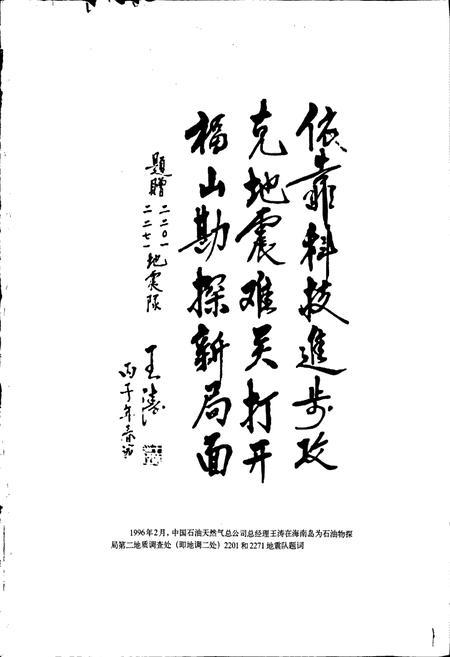 依靠科技進步攻
克地震难关打开
福山勘探新局面
题贈 二二〇一
二二七一 地震队
王涛
丙子年春节
1996年2月，中国石油天然气总公司总经理王涛在海南岛为石油物探
局第二地质调查处（即地调二处）2201和2271地震队题词